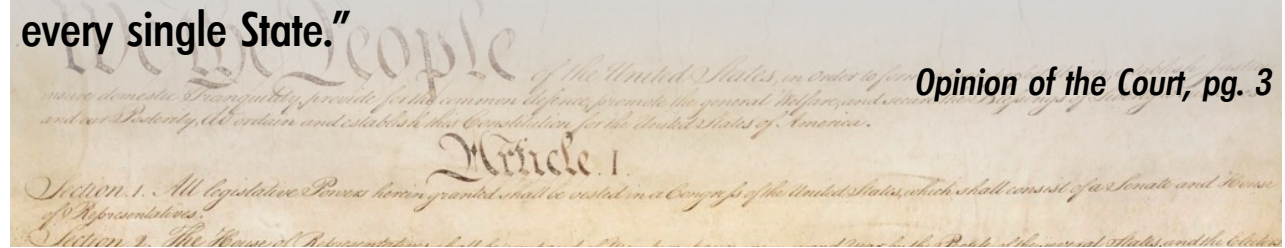 every single State.”
We the People
Opinion of the Court, pg. 3
of the United States, in order to form
insure domestic Tranquility, provide for the common defence, promote the general Welfare, and secure the Blessings of
and our Posterity, do ordain and establish this Constitution for the United States of America.
Article. I.
Section. 1. All legislative Powers herein granted shall be vested in a Congress of the United States, which shall consist of a Senate and House
of Representatives.
Section. 2. The House of Representatives shall be composed of Members chosen every second Year by the People of the several States, and the Electors